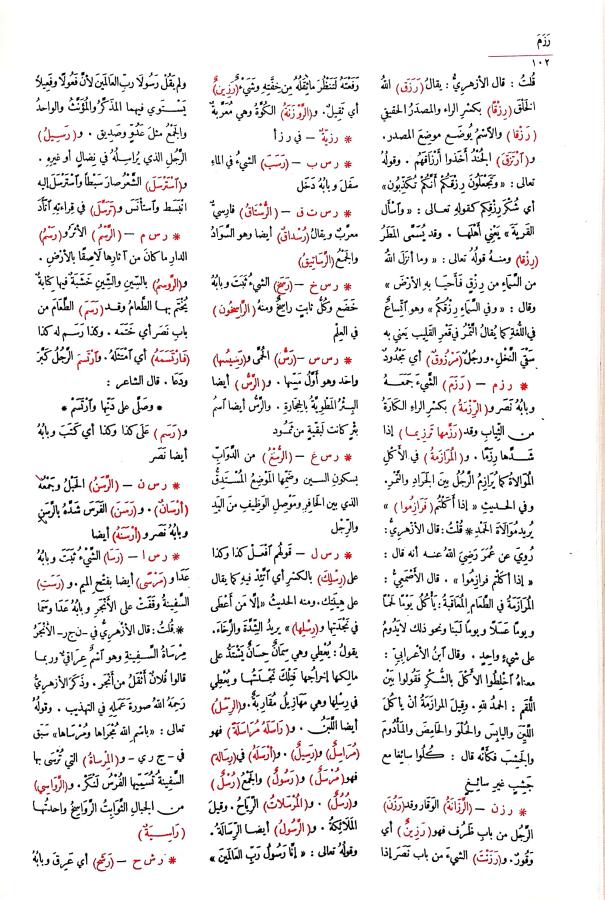 رَزَمَ
١٠٢
قُلتُ : قال الأزهريُّ : يقالُ (رَزَقَ) اللهُ
الخَلْقَ (رِزْقًا) بكسْرِ الراء والمصدَرُ الحقيقي
(رَزْقا) والاسْم يُوضَع موضِعَ المصدر .
و(ارْتَزَقَ) الجُنْدُ أَخَذوا أَرْزاقَهُم . وقولُهُ
تعالى : «وتَجْعَلُونَ رِزْقَكُمْ أَنَّكُمْ تُكَذِّبُون»
أي شُكرَ رِزْقِكم كقولِه تعالى : «واسْأَلِ
القريةَ» يَعْني أَهْلَها . وقد يُسَمَّى المَطَرُ
(رِزْقا) ومنهُ قولُه تعالى : «وما أنزَلَ اللهُ
من السَّماءِ من رِزقٍ فَأَحْيا به الأرضَ»
وقال : «وفي السَّماءِ رِزْقُكُمْ» وهو اتِّساعٌ
في اللغةِ كما يُقالُ التَّمْرُ في قَعْرِ القَلِيب يَعني به
سَقْيَ النَّخْلِ . ورجُلٌ (مَرْزُوقٌ) أي مَجْدُودٌ
* رزم – (رَزَمَ) الشَّيءَ جَمَعَهُ
وبابُهُ نَصَر و(الرِّزْمَةُ) بكسْرِ الراءِ الكارَةُ
من الثِّيابِ وقد (رَزَّمها تَرْزِيما) إذا
شَدَّها رِزَمًا . و(المُرازَمَةُ) في الأَكْلِ
المُوالاةُ كما يُرَازِمُ الرَّجُلُ بين الجَرادِ والتَّمْرِ.
وفي الحديثِ « إذا أَكَلْتُم (فَرازِمُوا) »
يُريدُ مُوالاةَ الحَمْدِ * قُلتُ : قال الأزهريُّ :
رُوِيَ عن عُمَرَ رَضِيَ اللهُ عنه أنه قال :
« إذا أكَلتُم فرازِمُوا » . قال الأَصْمَعِيُّ :
المُرازَمَةُ في الطَّعامِ المُعاقَبةُ : يأكُلُ يَوْمًا لحمًا
ويومًا عسَلًا ويومًا لَبَنًا ونحو ذلك لايَدُومُ
على شيءٍ واحدٍ . وقال ابنُ الأعرابيّ :
معناهُ اخْلِطُوا الأَكْلَ بالشُّكْرِ فقُولوا بين
اللُّقَمِ : الحمدُ للهِ . وقيلَ المرازمةُ أنْ يأكُلَ
اللَّيِّنَ واليابِسَ والحُلْوَ والحامِضَ والمَأْدُومَ
والجَشِبَ فكأنَّه قال : كُلُوا سائِغا مع
جَشِبٍ غير سائِغٍ
* رزن – (الرَّزَانَةُ) الوَقارُ وقد (رَزُنَ)
الرَّجُل من بابِ ظَرُفَ فهو (رَزِينٌ) أي
وَقُورٌ . و(رَزَنْتُ) الشيءَ من باب نَصَرَ إذا
رَفَعْتَهُ لتَنْظُرَ ماثِقَلُه مِن خِفَّتِهِ وشَيْءٌ (رَزِينٌ)
أي ثَقِيلٌ . و(الرَّوْزَنَةُ) الكُوَّةُ وهي مُعَرَّبةٌ
* رزية – في ر ز أ
* ر س ب – (رَسَبَ) الشيءُ في الماءِ
سَفَلَ وبابُهُ دَخَل
* ر س ت ق – (الرُّسْتاقُ) فارسيٌّ
معرَّبٌ ويقالُ (رُسْداقٌ) أيضا وهو السَّوَادُ
والجمعُ (الرَّساتِيقُ)
* ر س خ – (رَسَخَ) الشيءُ ثَبَت وبابُهُ
خَضَع وكُلُّ ثابتٍ راسِخٌ ومنه (الرَّاسِخُون)
في العِلْمِ
* ر س س – (رَسُّ) الحُمَّى و(رَسِيسُها)
واحد وهو أوَّلُ مَسِّها . و(الرَّسُّ) أيضا
البِئرُ المَطْوِيَّةُ بالحِجارةِ . والرَّسُّ أيضا اسمُ
بئرٍ كانت لبَقِيَّةٍ من ثَمُود
* ر س غ – (الرُّسْغُ) من الدَّوابِّ
بسكون السين وضَمِّها المَوْضِعُ المُسْتَدِقُّ
الذي بين الحَافِرِ ومَوْصِلِ الوَظِيفِ من اليَدِ
والرِّجْلِ
* ر س ل – قولهُم افْعَلْ كذا وكذا
على (رِسْلِكَ) بالكسْرِ أي اتَّئِدْ فيه كما يقالُ
على هِينَتِك . ومنه الحديثُ «إلَّا من أَعْطَى
في نَجْدَتِها و(رِسْلِها) » يريدُ الشِّدَّةَ والرَّخاءَ.
يقولُ : يُعْطِي وهي سِمَانٌ حِسانٌ يَشْتَدُّ على
مالِكِها إخراجُها فتِلْكَ نَجْدَتُها ويُعْطِي
في رِسْلِها وهي مَهازِيلُ مُقارِبةٌ . و(الرِّسْلُ)
أيضا اللَّبَنُ . و(رَاسَلَهُ مُرَاسَلَةً) فهو
(مُرَاسِلٌ) و(رَسِيلٌ) . و(أَرْسَلَهُ) في(رسالةٍ)
فهو (مُرْسَلٌ) و(رَسُولٌ) والجمعُ (رُسْلٌ)
و(رُسُلٌ) . و(المُرْسَلاتُ) الرِّياحُ . وقيلَ
المَلائِكَةُ . و(الرَّسُولُ) أيضا الرِّسالَةُ .
وقولُهُ تعالى : « إنَّا رَسُولُ رَبِّ العالَمِينَ »
ولم يَقُلْ رَسُولَا ربِّ العالَمِين لأنَّ فَعُولًا وفَعِيلًا
يَسْتَوِي فيهما المذَكَّرُ والمُؤَنَّثُ والواحدُ
والجَمْعُ مثلَ عَدُوٍّ وصَدِيقٍ . و(رَسِيلُ)
الرَّجُل الذي يُراسِلُهُ في نِضالٍ أو غيرِه .
و(اسْتَرْسَلَ) الشَّعْرُصار سَبْطًا واسْتَرْسَل إليه
انْبَسَط واسْتَأْنَسَ و(تَرَسَّلَ) في قِراءتِهِ اتَّأَدَ
* ر س م – (الرَّسْمُ) الأَثَرُ و(رَسْمُ)
الدارِ ما كانَ من آثارِها لاصِقًا بالأَرْضِ .
و(الرَّوْسَمُ) بالسِّين والشِّين خَشَبةٌ فيها كِتابةٌ
يُخْتَمُ بها الطَّعامُ وقد (رَسَمَ) الطَّعامَ من
باب نَصَر أي خَتَمَهُ . وكذا رَسَم له كذا
(فَارْتَسَمَهُ) أي امْتَثَلَهُ . وارْتَسَمَ الرَّجُلُ كَبَّرَ
ودَعا . قال الشاعِر :
* وصَلَّى على دَنِّها وارْتَسَمْ *
و(رسم) على كذا وكذا أي كَتَبَ وبابُهُ
أيضا نَصَر
* ر س ن – (الرَّسَنُ) الحَبْلُ وجَمْعُهُ
(أَرْسانٌ) . و(رَسَنَ) الفَرَسَ شَدَّهُ بالرَّسَنِ
وبابُه نَصَر و(أَرْسَنَهُ) أيضا
* ر س ا – (رَسَا) الشَّيْءُ ثَبَتَ وبابُهُ
عَدَا و(مَرْسًى) أيضا بفتحِ الميم . و(رَسَتِ)
السَّفِينةُ وَقَفَتْ على الأَنْجَرِ وبابُهُ عَدَا وسَمَا
* قُلتُ : قال الأزهَرِيُّ في – ن ج ر – الأَنْجَرُ
مِرْساةُ السَّفِينةِ وهو اسْمٌ عِراقيٌّ وربما
قالوا فُلانٌ أَثْقَلُ من أَنْجَرٍ . وذَكَرَ الأزهَرِيُّ
رَحِمَهُ اللهُ صورةَ عَمَلِهِ في التهذيب . وقولُهُ
تعالى : «باسْمِ اللهِ مُجْرَاها ومُرْسَاها» سَبَق
في – ج ر ي – و(المِرساةُ) التي تُرْسَى بها
السَّفينةُ تُسَمِّيها الفُرْسُ لَنْكَرْ . و(الرَّوَاسِي)
من الجبالِ الثَّوابِتُ الرَّوَاسِخُ واحدتُها
(رَاسِيَةٌ)
* ر ش ح – (رَشَحَ) أي عَرِقَ وبابُهُ